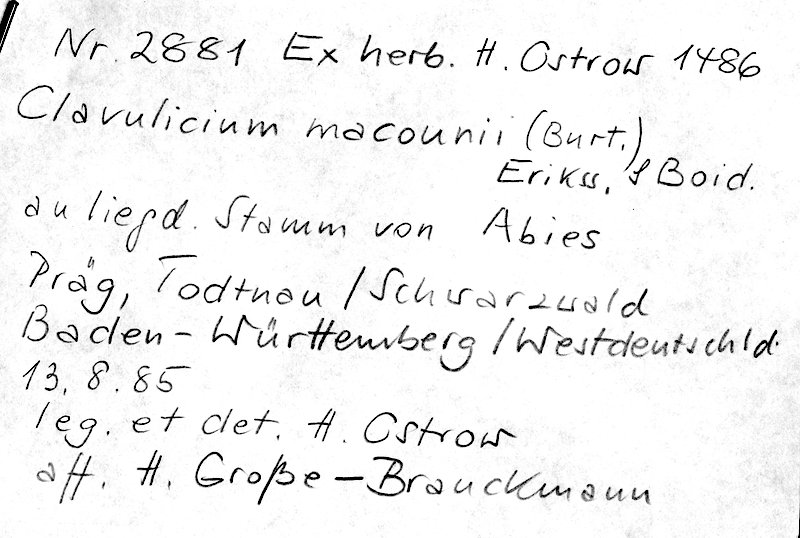 Nr. 2881 Ex herb. H. Ostrow 1486
Clavulicium macounii (Burt.)
Erikss. & Boid.
an liegd. Stamm von Abies
Präg, Todtnau / Schwarzwald
Baden-Württemberg / Westdeutschld.
13.8.85
leg. et det. H. Ostrow
aff. H. Große-Brauckmann